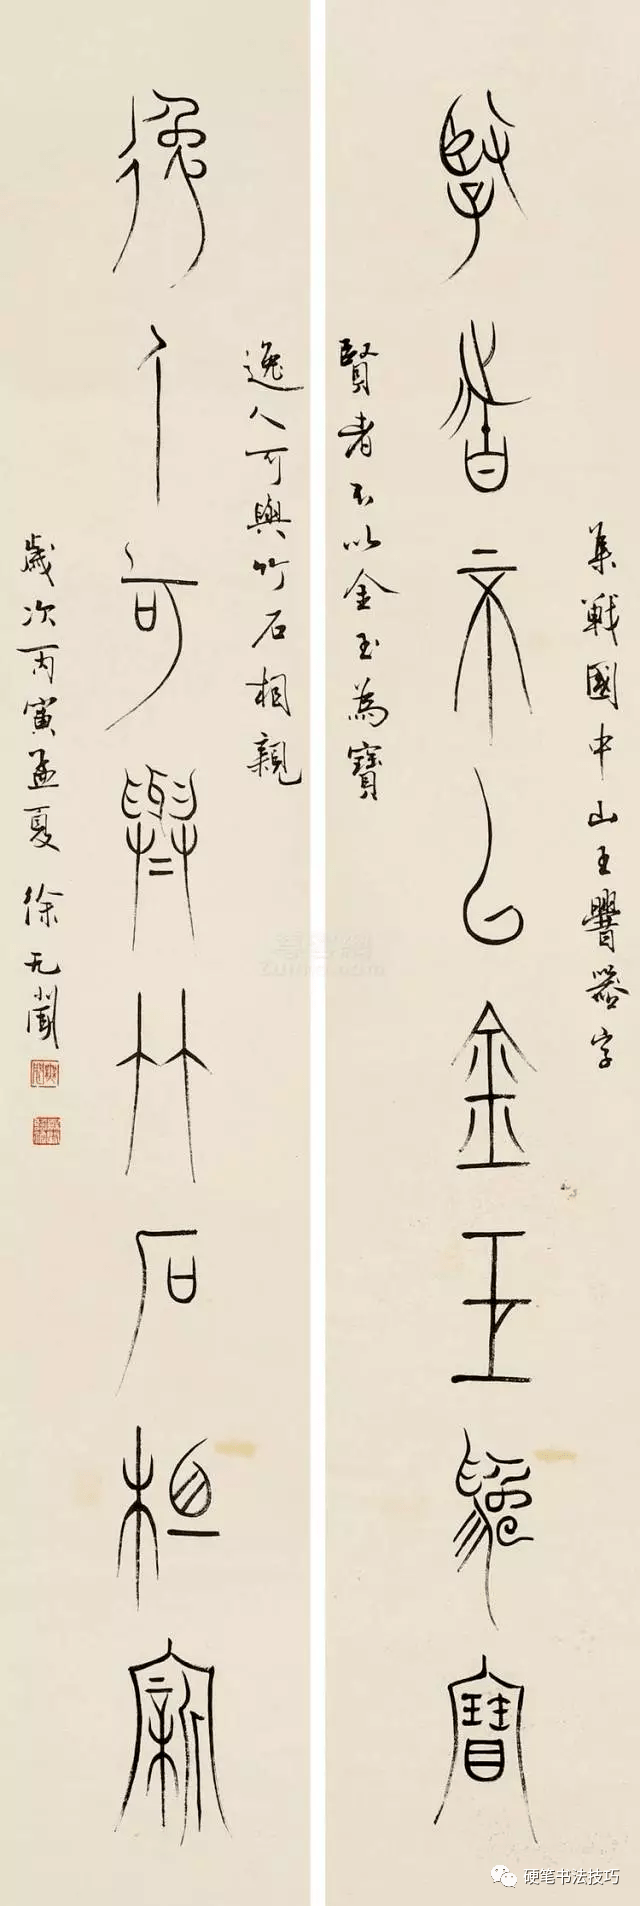 賢者不以金玉為寶
集戰國中山王䁑器字
賢者不以金玉為寶
逸人可與竹石相親
逸人可與竹石相親
歲次丙寅孟夏 徐无聞
硬笔书法技巧